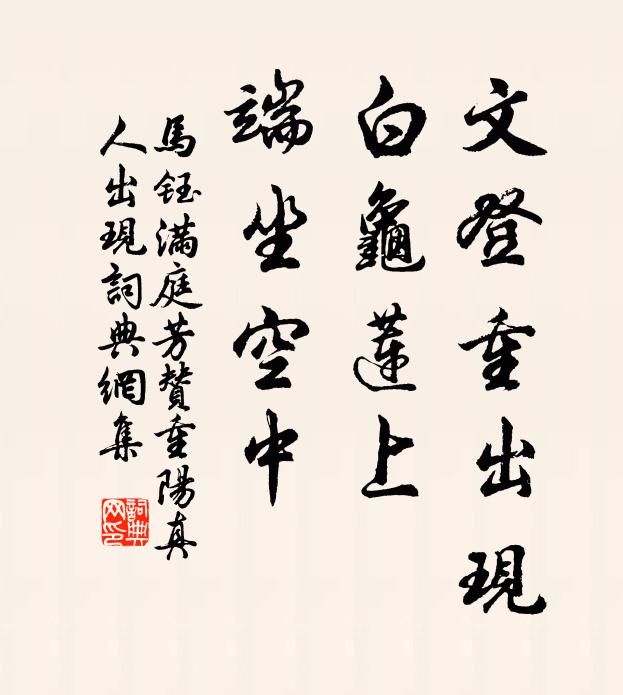 文登重出現
白龜蓮上
端坐空中
馬鈺滿庭芳贊重陽真
人出現詞典網集
詞典
网印